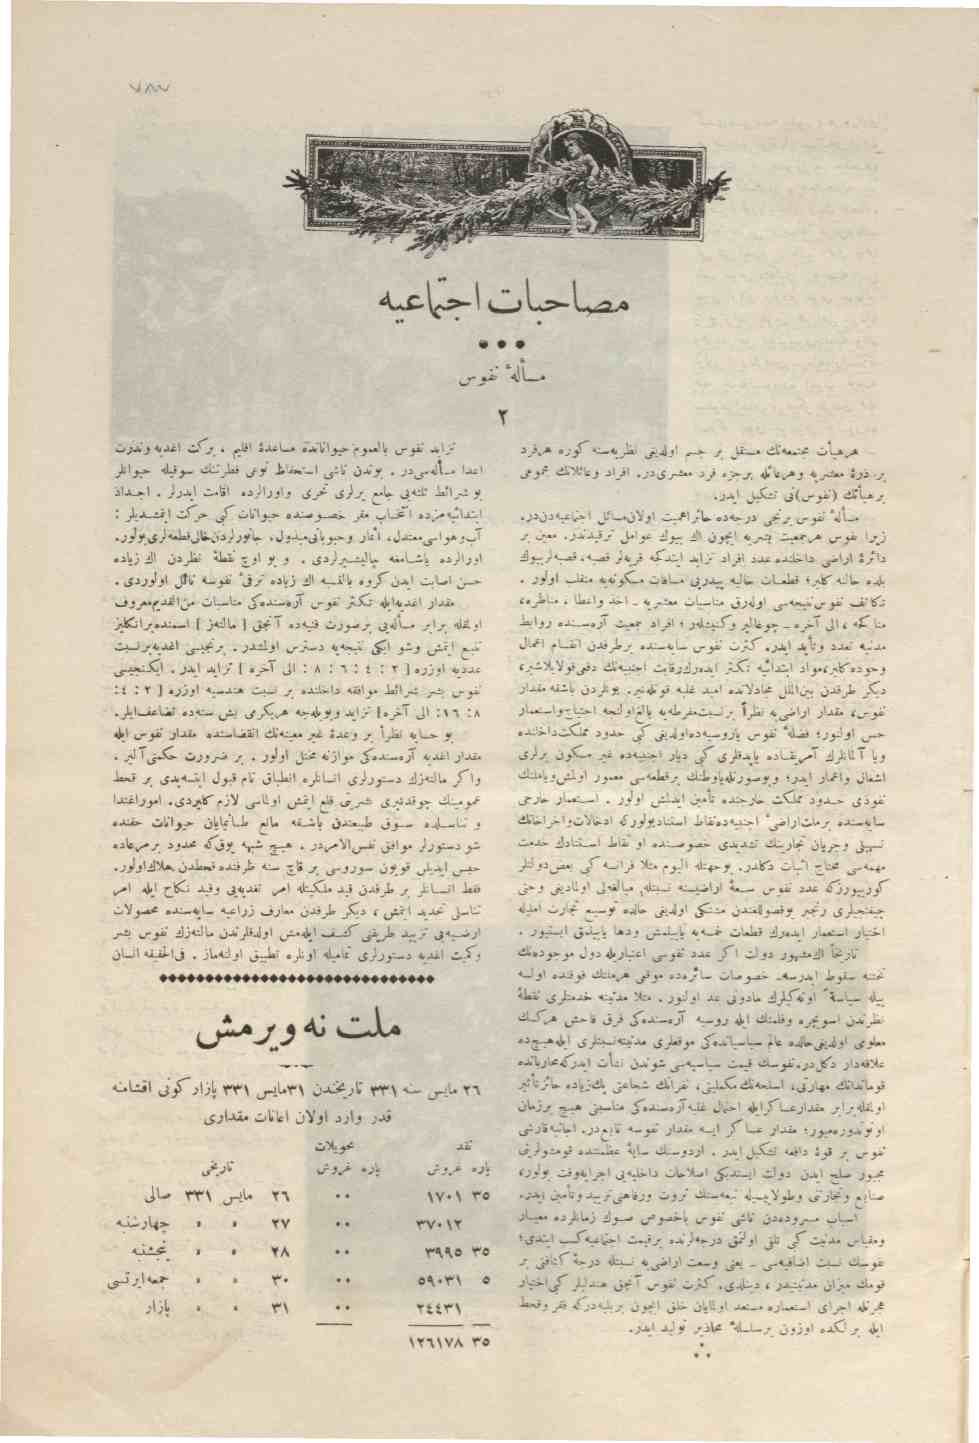 ٧٨٧
مصاحبات اجتماعیه
مسألهٔ نفوس
٢
هرهیأت مجتمعه‌نك مستقل بر جسم اولدیغی نظریه‌سنه كوره هرفرد
بر ذرهٔ معشریه وهرعائله برجزء فرد معشری‌در. افراد وعائلاتك مجموعی
بر هیأتك (نفوس)نی تشكیل ایدر.
مسألهٔ نفوس برنجی درجه‌ده حائزاهمیت اولان مسائل اجتماعیه‌دن‌در.
زیرا نفوس هرجمعیت بشریه ایچون اك بیوك عوامل ترقیدندر. معین بر
دائرهٔ اراضی داخلنده عدد افراد تزاید ایتدكجه قریه‌لر قصبه، قصبه‌لر بیوك
بلده حالنه كلیر؛ قطعات خالیه پیدرپی مسافات مسكونه‌یه منقلب اولور .
تكاثف نفوس نتیجه‌سی اوله‌رق مناسبات معشریه ـ اخذ واعطا ، مناظره،
مناكحه ، الی آخره ـ چوغالیر وكنیشلر ؛ افراد جمعیت آره‌سنده روابط
مدنیه تعدد وتأید ایدر. كثرت نفوس سایه‌سنده برطرفدن انقسام اعمال
وجوده كلیر، مواد ابتدائیه تكثر ایده‌رك رقابت اجنبیه‌نك دفعی قولایلاشیر،
دیكر طرفدن بین‌الملل مجادلاتده امید غلبه قوتلنیر. بونلردن باشقه مقدار
نفوس، مقدار اراضی‌یه نظراً برنسبت مفرطه‌یه بالغ اولنجه احتیاج واستعمار
حس اولنور؛ فضلهٔ نفوس یا روسیه‌ده اولدیغی كبی حدود مملكت داخلنده
ویا آلمانلرك آمریقاده یاپدقلری كبی دیار اجنبیه‌ده غیر مسكون یرلری
اشغال واعمار ایدر؛ وبوصورتله یا وطنك برقطعه‌سی معمور اولمش ویا ملتك
نفوذی حدود مملكت خارجنده تأمین ایدلمش اولور . استعمار خارجی
سایه‌سنده برملت اراضیٔ اجنبیه‌ده نقاط استناد بولور كه ادخالات واخراجاتك
تسهیلی وجریان تجارینك تشدیدی خصوصنده او نقاط استنادك خدمت
مهمه‌سی محتاج اثبات دكلدر. بوجهتله الیوم مثلا فرانسه كبی بعض دولتلر
كوریبورز كه عدد نفوس سعهٔ اراضیسنه نسبتله مبالغه‌لی اولمادیغی وحتی
چیفتجیلری رنجبر یوقصوللغندن متشكی اولدیغی حالده توسیع تجارت امیله
اختیار استعمار ایده‌رك قطعات خمسه‌یه یاییلمش ودها یاییلمق ایستیور .
تاریخاً اك مشهور دولت اكر عدد نفوسی اعتباریله دول موجوده‌نك
تحتنه سقوط ایدرسه، خصوصات سائره‌ده موقعی هرملتك فوقنده اولسه
بیله سیاسةً اوته‌كیلرك مادونی عد اولنور. مثلا مدنیته خدمتلری نقطهٔ
نظرندن اسویچره وفلمنك ایله روسیه آره‌سنده‌كی فرق فاحش هركسك
معلومی اولدیغی حالده عالم سیاسیاتده‌كی موقعلری مدنیته نسبتلری ایله هیچ ده
علاقه‌دار دكلدر. نفوسك قیمت سیاسیه‌سی شوندن نشأت ایدر كه محارباتده
قوماندانك مهارتی، اسلحه‌نك مكملیتی، نفراتك شجاعتی پك زیاده حائز تأثیر
اولمقله برابر مقدار عساكر ایله احتمال غلبه آره‌سنده‌كی مناسبتی هیچ برزمان
اونوتدوره‌میور؛ مقدار عساكر ایسه مقدار نفوسه تابع‌در. اجانبه قارشی
نفوس بر قوهٔ دافعه تشكیل ایدر . اردوسنك سایهٔ عظمتنده قومشولرینی
مجبور صلح ایدن دولت ایستدیكی اصلاحات داخلیه‌یی اجرایه وقت بولور،
صنایع وتجارتنی وطولاییسیله تبعه‌سنك ثروت ورفاهنی تزیید وتأمین ایدر.
اسباب مسروده‌دن ناشی نفوس باخصوص صوك زمانلرده معیار
ومقیاس مدنیت كبی تلقی اولنمق درجه‌لرنده برقیمت اجتماعیه كسب ایتدی؛
نفوسك نسبت اضافیه‌سی ـ یعنی وسعت اراضی‌یه نسبتله درجهٔ كثافتی بر
قومك میزان مدنیتیدر ، دینلدی. كثرت نفوس آنجق هندلیلر كبی اختیار
هجرتله اجرای استعماره مستعد اولمایان خلق ایچون بربلیه‌در كه فقر وقحط
ایله بر لكده اوزون برسلسلهٔ محاذیر تولید ایدر.
تزاید نفوس بالعموم حیواناتده مساعدهٔ اقلیم ، بركت اغدیه وندرت
اعدا مسأله‌سی‌در . بوندن ناشی استحفاظ نوعی فطرتنك سوقیله حیوانلر
بو شرائط ثلثه‌یی جامع یرلری تحری واورالرده اقامت ایدرلر . اجداد
ابتدائیه‌مزده انتخاب مقر خصوصنده حیوانات كبی حركت ایتمشدیلر :
آب وهواسی معتدل، اثمار وحبوباتی مبذول، جانورلردن خالی قطعه‌لری بولور.
اورالرده یاشامغه چالیشیرلردی . و بو اوچ نقطهٔ نظردن اك زیاده
حسن اصابت ایدن كروه بالنفسه اك زیاده ترقیٔ نفوسه نائل اولوردی .
مقدار اغدیه‌ایله تكثر نفوس آره‌سنده‌كی مناسبات من‌القدیم معروف
اولمقله برابر مسأله‌یی برصورت فنیه‌ده آنجق [ مالته‌ز ] اسمنده برانكلیز
تتبع ایتمش وشو ایكی نتیجه‌یه دسترس اولمشدر. برنجیسی اغدیه برنسبت
عددیه اوزره [ ٢ : ٤ : ٦ : ٨ : الی آخره ] تزاید ایدر . ایكنجیسی
نفوس بشر شرائط موافقه داخلنده بر نسبت هندسیه اوزره [ ٢ : ٤ :
٨ : ١٦ : الی آخره] تزاید وبویله‌جه هریكرمی بش سنه‌ده تضاعف ایلر.
بو حسابه نظراً بر وعدهٔ غیر معینه‌نك انقضاسنده مقدار نفوس ایله
مقدار اغدیه آره‌سنده‌كی موازنه مختل اولور . بر ضرورت حكمنی آلیر .
واكر مالته‌زك دستورلری انسانلره انطباق تام قبول ایتسه‌یدی بر قحط
عمومینك چوقدنبری بشریتی قلع ایتمش اولماسی لازم كلیردی. امور اغتدا
و تناسلده سوق طبیعتدن باشقه مانع طانیمایان حیوانات حقنده
شو دستورلر موافق نفس‌الامردر . هیچ شبهه یوق كه محدود برمرعاده
حبس ایدیلن قویون سوروسی بر قاچ سنه ظرفنده قحطدن هلاك اولور.
فقط انسانلر بر طرفدن قید ملكیتله امر تغدیه‌یی وقید نكاح ایله امر
تناسلی تحدید ایتمش ، دیكر طرفدن معارف زراعیه سایه‌سنده محصولات
ارضیه‌یی تزیید طریقنی كشف ایله‌مش اولدقلرندن مالته‌زك نفوس بشر
وكمیت اغدیه دستورلری تمامیله اونلره تطبیق اولنه‌ماز . فی‌الحقیقه انسان
ملت نه ویرمش
٢٦ مایس سنه ٣٣١ تاریخندن ٣١ مایس ٣٣١ پازار كونی اقشامنه
قدر وارد اولان اعانات مقداری
نقد محویلات
پاره غروش پاره غروش تاریخی
٣٥ ١٧٠١ ٠٠ ٢٦ مایس ٣٣١ صالی
٣٧٠١٢ ٠٠ ٢٧ » » چهارشنبه
٣٥ ٣٩٩٥ ٠٠ ٢٨ » » پنجشنبه
٥ ٥٩٠٣١ ٠٠ ٣٠ » » جمعه‌ایرتسی
٢٤٤٣١ ٠٠ ٣١ » » پازار
٣٥ ١٢٦١٧٨